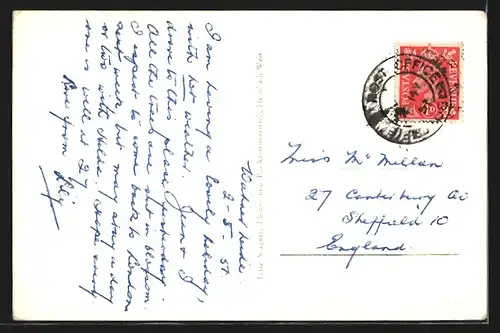 2 - 5 51.
I am having a lovely holiday,
with hot weather. Jean & I
drove to this place yesterday.
All the trees are out in blossom.
I expect to come back to London
next week but may stay a day
or two with Hilda. Hope every
one is well at 27.
Love from
Lily
POST OFFICE
Miss Mc Mellan
27 Canterbury Av
Sheffield 10
England.